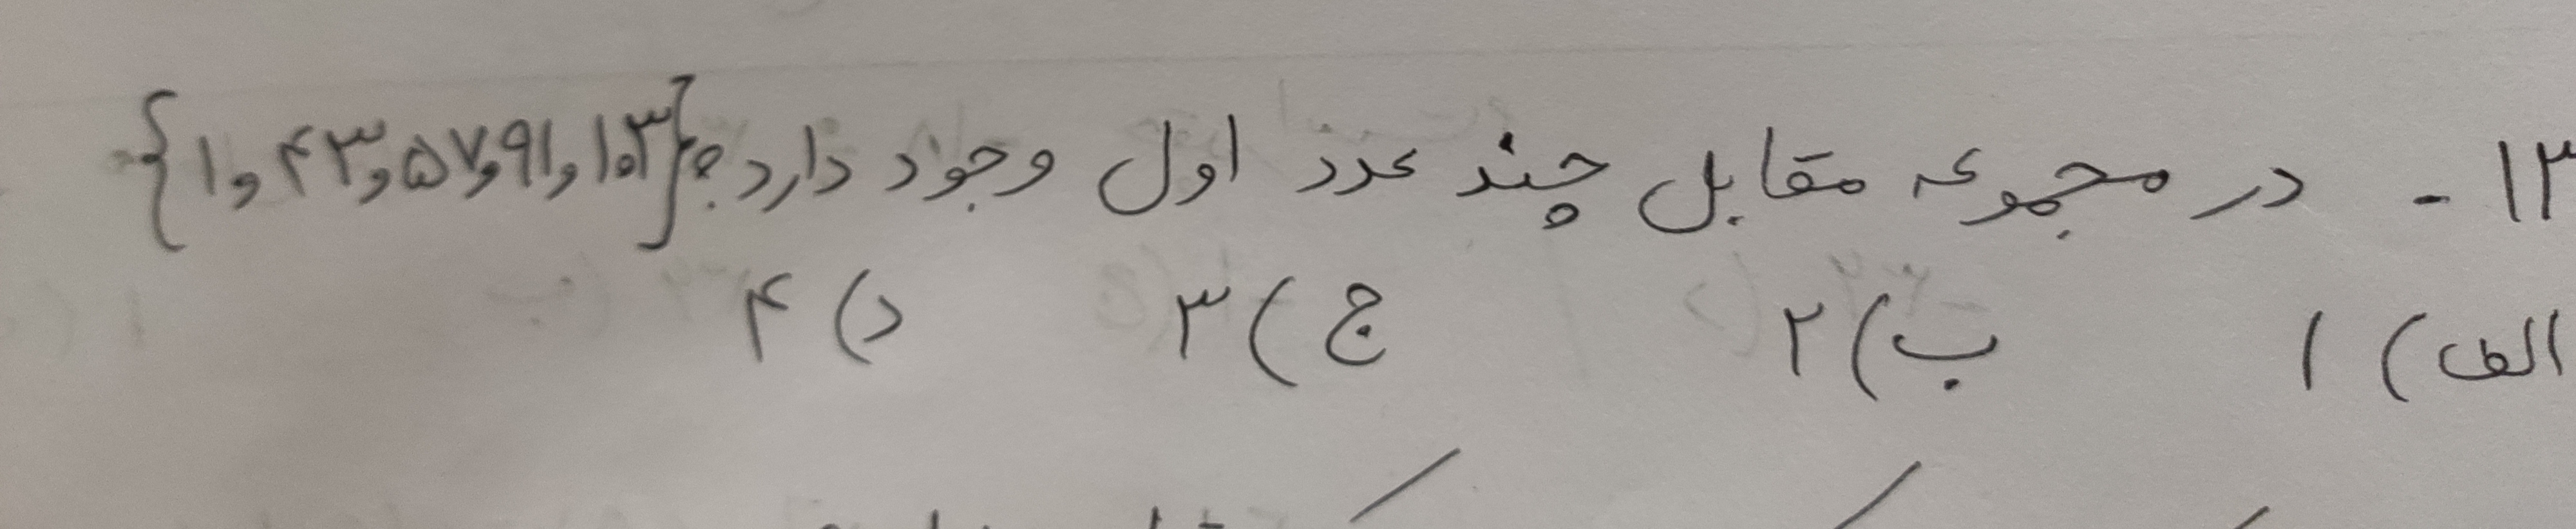 ۱۳- در مجموعه مقابل چند عدد اول وجود دارد؟ {۱ و ۴۳ و ۵۷ و ۹۱ و ۱۰۳}
الف) ۱ ب) ۲ ج) ۳ د) ۴